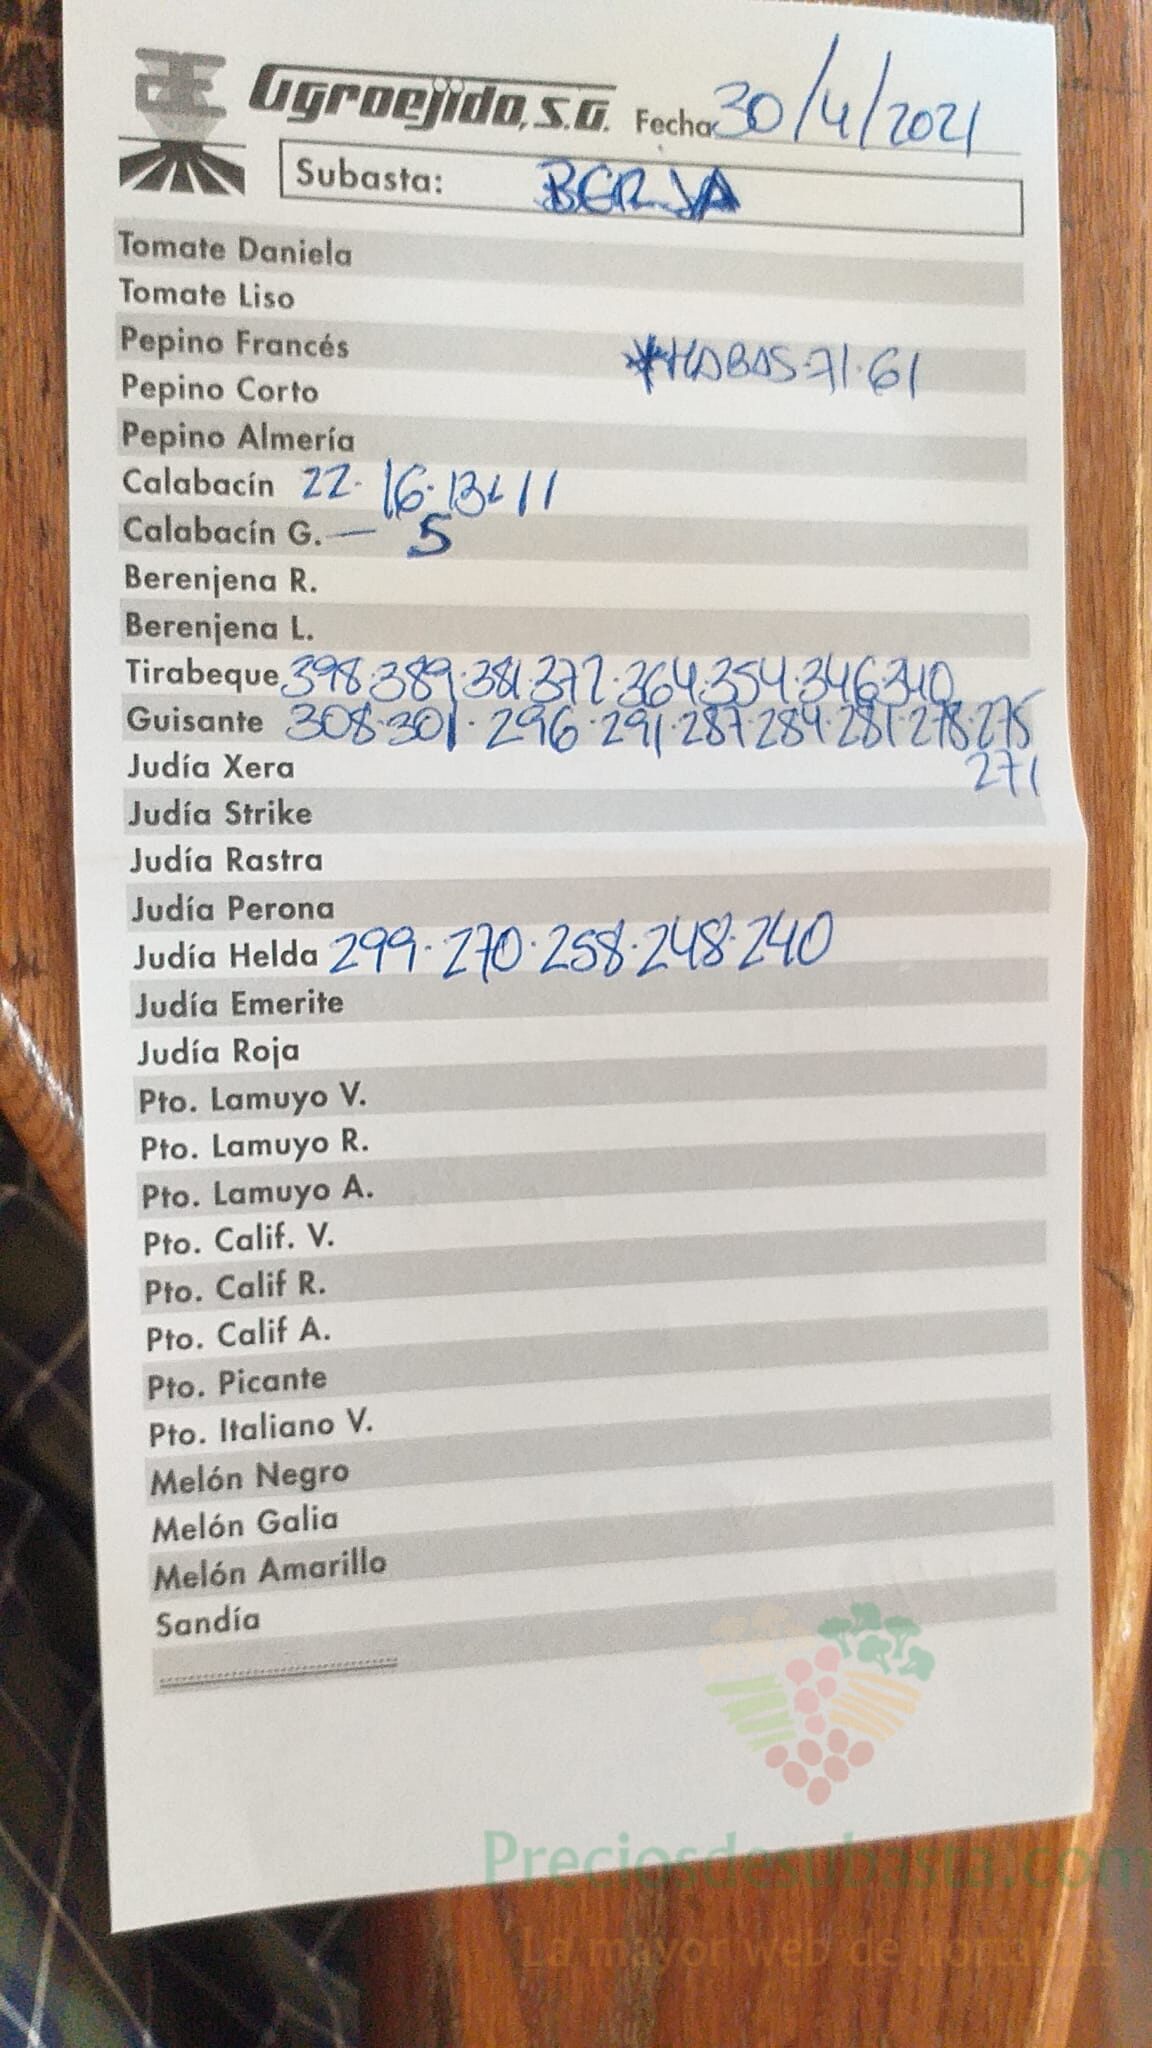 Agroejido, S.A. Fecha 30/4/2021
Subasta: BERJA
Tomate Daniela
Tomate Liso
Pepino Francés *HABAS-71·61
Pepino Corto
Pepino Almería
Calabacín 22·16·13·11
Calabacín G. — 5
Berenjena R.
Berenjena L.
Tirabeque 398·389·381·372·364·354·346·340
Guisante 308·301·296·291·287·284·281·278·275
271
Judía Xera
Judía Strike
Judía Rastra
Judía Perona
Judía Helda 299·270·258·248·240
Judía Emerite
Judía Roja
Pto. Lamuyo V.
Pto. Lamuyo R.
Pto. Lamuyo A.
Pto. Calif. V.
Pto. Calif R.
Pto. Calif A.
Pto. Picante
Pto. Italiano V.
Melón Negro
Melón Galia
Melón Amarillo
Sandía
Preciosdesubasta.com
La mayor web de hortalizas